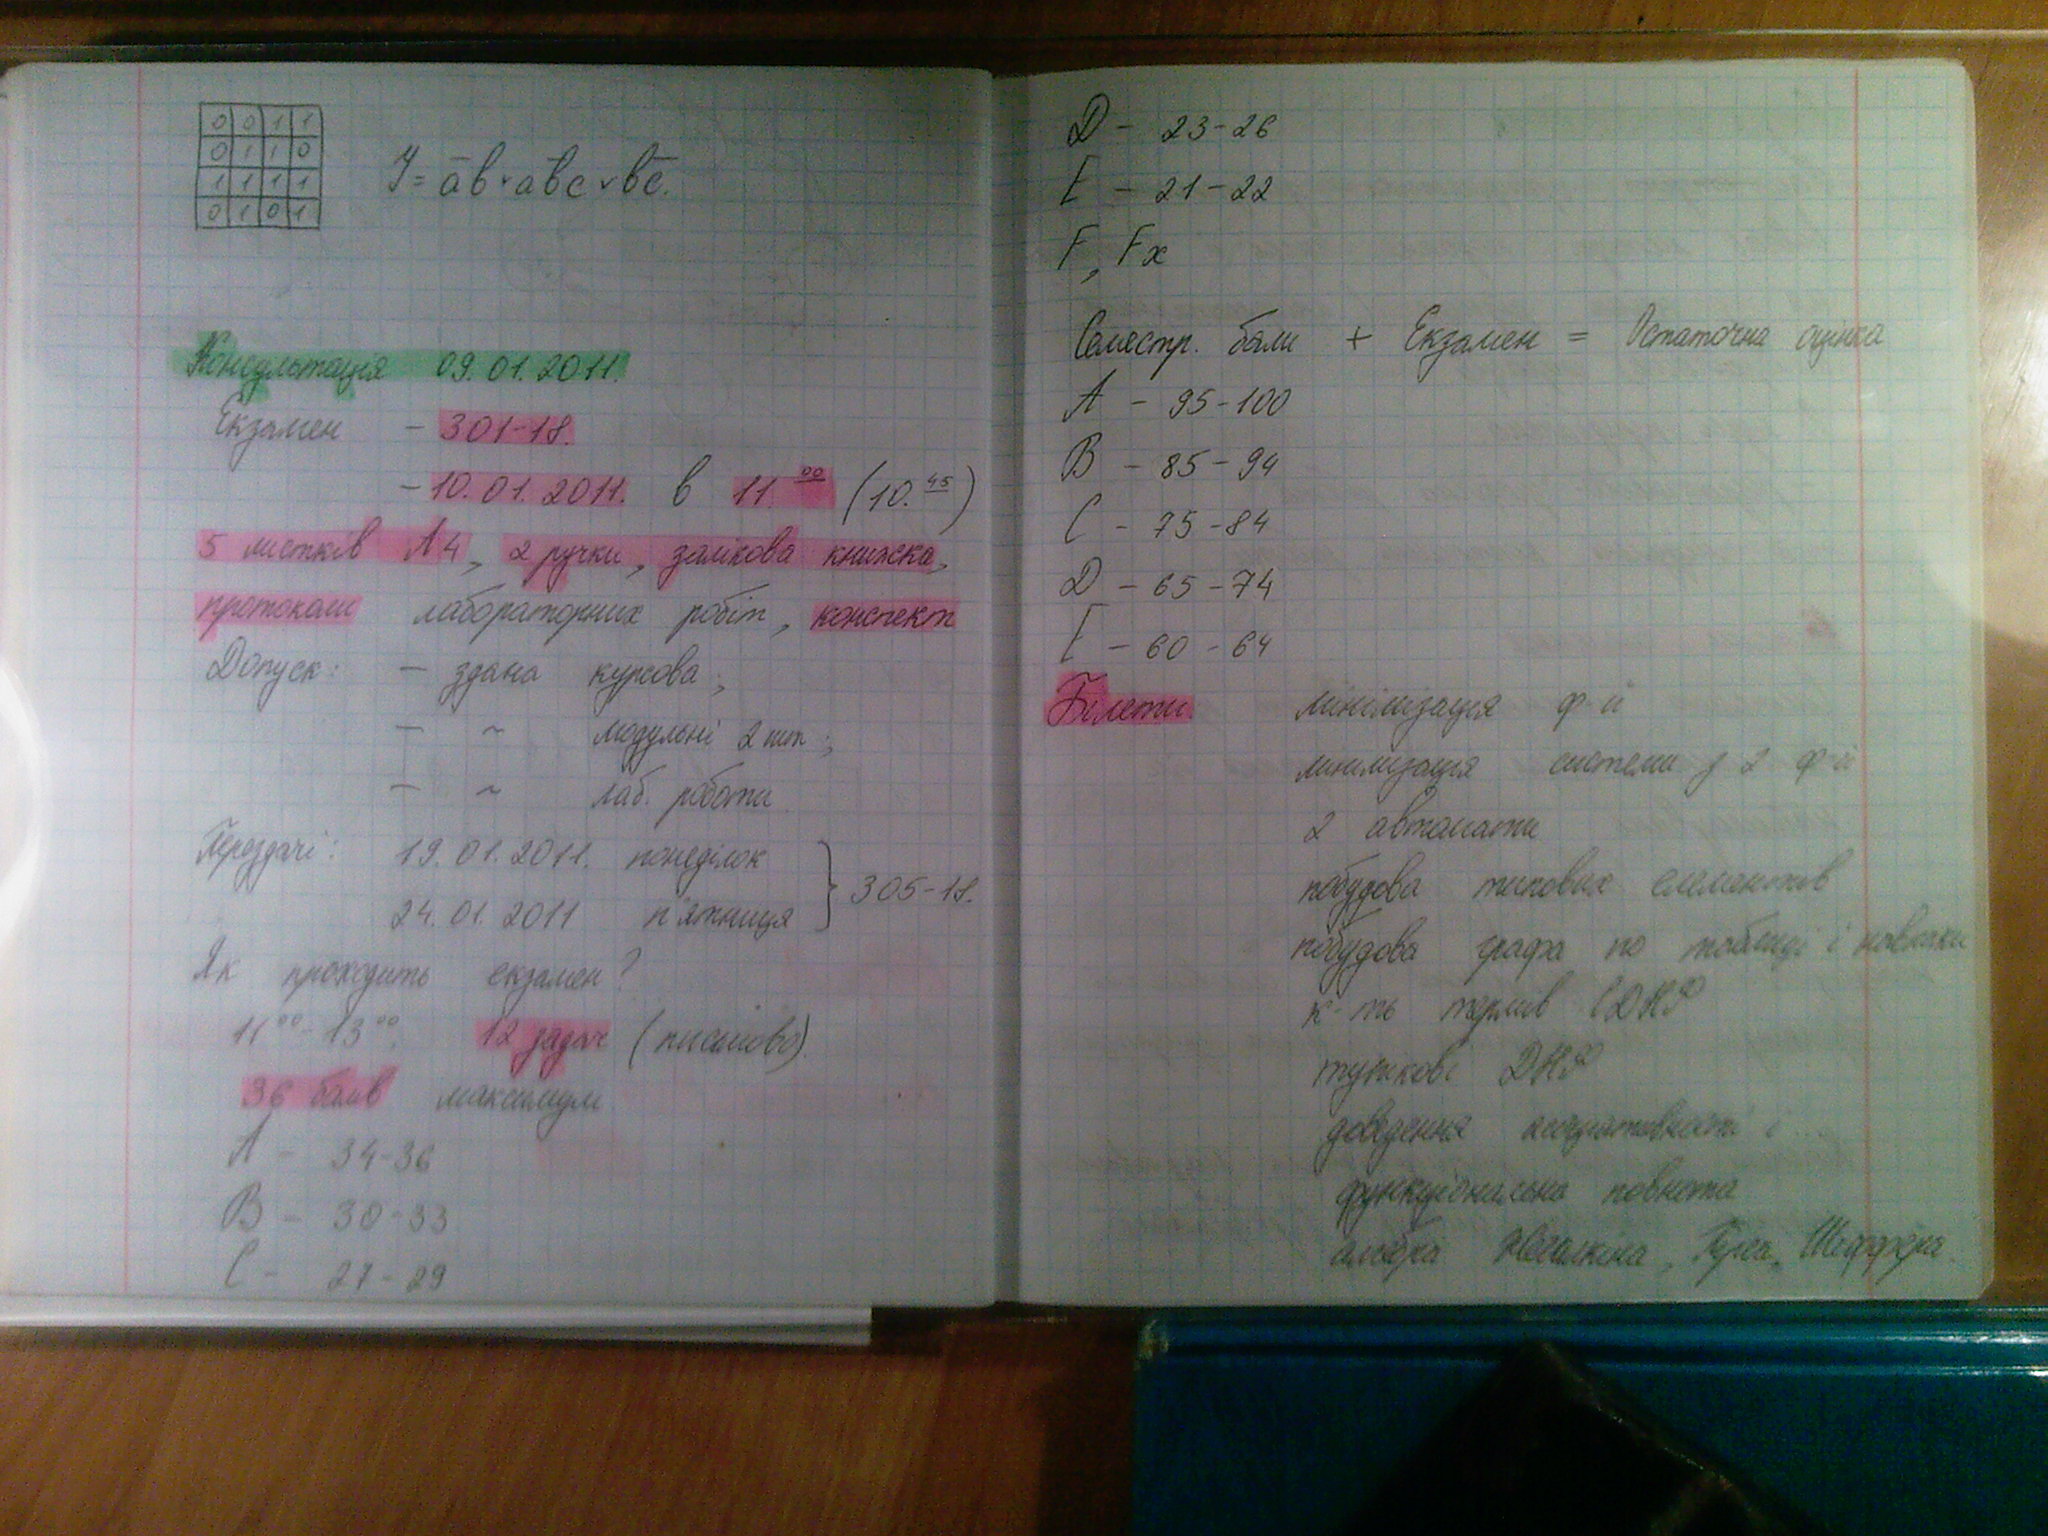 0 0 1 1
0 1 1 0
1 1 1 1
0 1 0 1
У = a̅b ∨ ab̅c ∨ bc̅.
Консультація 09.01.2011.
Екзамен - 301-18.
- 10.01.2011. в 11.00 (10.45)
5 листків А4, 2 ручки, залікова книжка,
протоколи лабораторних робіт, конспект
Допуск: - здана курсова;
- ~ модульні 2 шт.;
- ~ лаб. роботи
Перездачі: 19.01.2011. понеділок
24.01.2011 п'ятниця
305-18.
Як проходить екзамен?
11 00 - 13 00. 12 задач (письмово).
36 балів максимум
A - 34-36
B - 30-33
C - 27-29
D - 23-26
E - 21-22
F, Fx
Семестр. бали + Екзамен = Остаточна оцінка
A - 95-100
B - 85-94
C - 75-84
D - 65-74
E - 60-64
Білети. мінімізація ф-й
мінімізація системи з 2 ф-й
2 автомати
побудова типових елементів
побудова графа по таблиці і навпаки
к-ть термів СДНФ
тупікові ДНФ
доведення асоціативності і ...
функціональна повнота
алгебра Жегалкіна, Пірса, Шеффера.